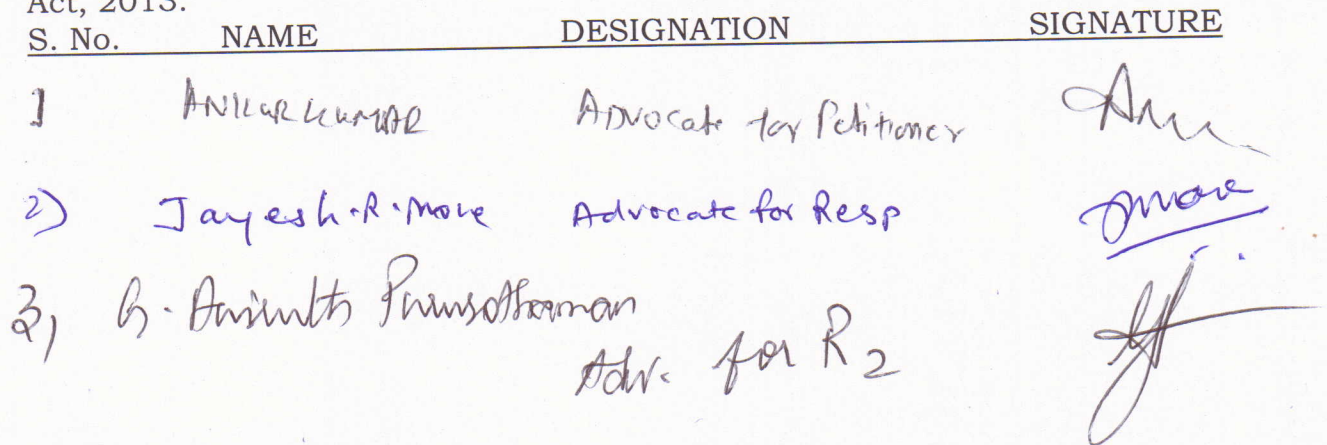 Act, 2013.
S. No. NAME DESIGNATION SIGNATURE
1 ANKUR KUMAR Advocate for Petitioner
2) Jayesh.R.More Advocate for Resp more
3, G. Purusothaman
Adv. for R2